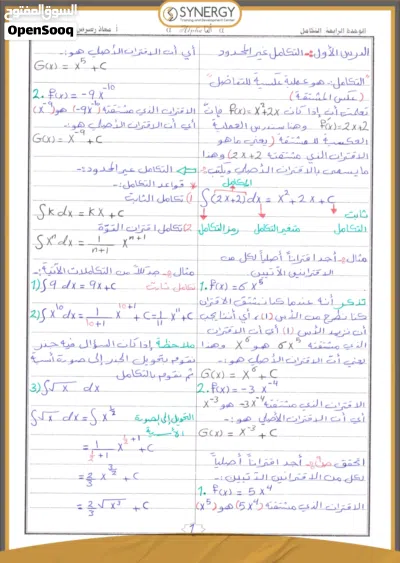 السوق المفتوح
OpenSooq
SYNERGY
Training and Development Center
الوحدة الرابعة: التكامل
أ. معاذ
الدرس الأول: التكامل غير المحدود
التكامل: هو عملية عكسية للتفاضل
(عكس المشتقة)
تعلمت أن إذا كانت f(x) = x²+2x فإن
f'(x) = 2x+2 وهنا سندرس العملية
العكسية للمشتقة (يعني ما هو
الاقتران الذي مشتقته 2x+2) وهذا
ما يسمى بالاقتران الأصلي
التكامل
∫(2x+2)dx = x² + 2x + C
ثابت التكامل
متغير التكامل
رمز التكامل
مثال: أجد اقتراناً أصلياً لكل من
الاقترانين الآتيين
1. f(x) = 6x⁵
تذكر أنه عندما كنا نشتق الاقتران
كنا نطرح من الأس (1)، أي أننا يجب
أن نزيد الأس (1) أي أن الاقتران
الذي مشتقته 6x⁵ هو x⁶ وهذا
يعني أن الاقتران الأصلي هو:-
G(x) = x⁶ + C
2. f(x) = -3x⁻⁴
الاقتران الذي مشتقته -3x⁻⁴ هو x⁻³
أي أن الاقتران الأصلي هو:-
G(x) = x⁻³ + C
أتحقق: أجد اقتراناً أصلياً
لكل من الاقترانين الآتيين:-
1. f(x) = 5x⁴
الاقتران الذي مشتقته (5x⁴) هو (x⁵)
أي أن الاقتران الأصلي هو:-
G(x) = x⁵ + C
2. f(x) = -9x⁻¹⁰
الاقتران الذي مشتقته (-9x⁻¹⁰) هو (x⁻⁹)
أي أن الاقتران الأصلي هو:-
G(x) = x⁻⁹ + C
التكامل غير المحدود:-
قواعد التكامل:-
1) تكامل الثابت
∫k dx = kx + C
2) تكامل اقتران القوة
∫xⁿ dx = 1/(n+1) xⁿ⁺¹
مثال: جد كلاً من التكاملات الآتية:-
1) ∫9 dx = 9x + C تكامل ثابت
2) ∫x¹⁰ dx = 1/(10+1) x¹⁰⁺¹ + C = 1/11 x¹¹ + C
ملاحظة: إذا كان السؤال فيه جذر
نقوم بتحويل الجذر إلى صورة أسية
ثم نقوم بالتكامل
3) ∫√x dx
∫√x dx = ∫x^(1/2) التحويل إلى الصورة الأسية
= 1/(1/2+1) x^(1/2+1) + C
= 2/3 x^(3/2) + C
= 2/3 √x³ + C